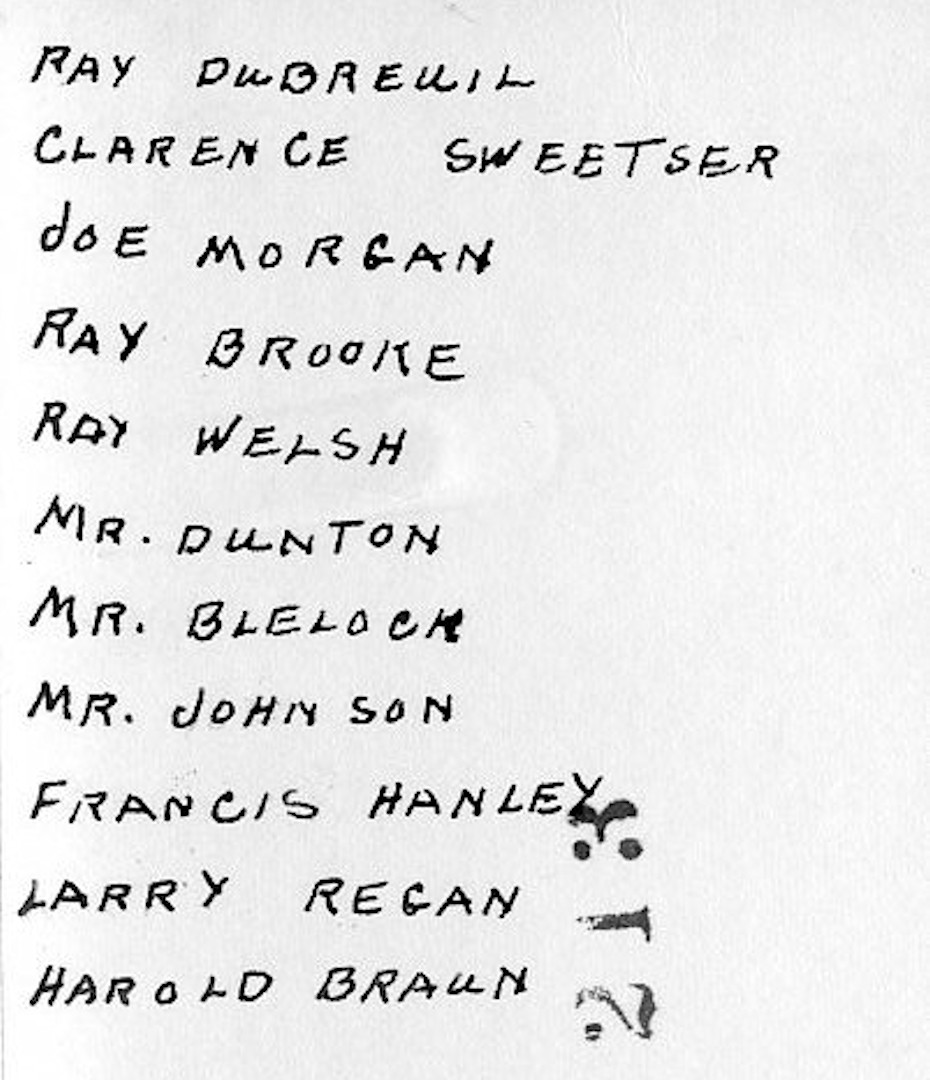 RAY DuBREUIL
CLARENCE SWEETSER
JOE MORGAN
RAY BROOKE
RAY WELSH
MR. DUNTON
MR. BLELOCK
MR. JOHNSON
FRANCIS HANLEY
LARRY REGAN
HAROLD BRAUN
213